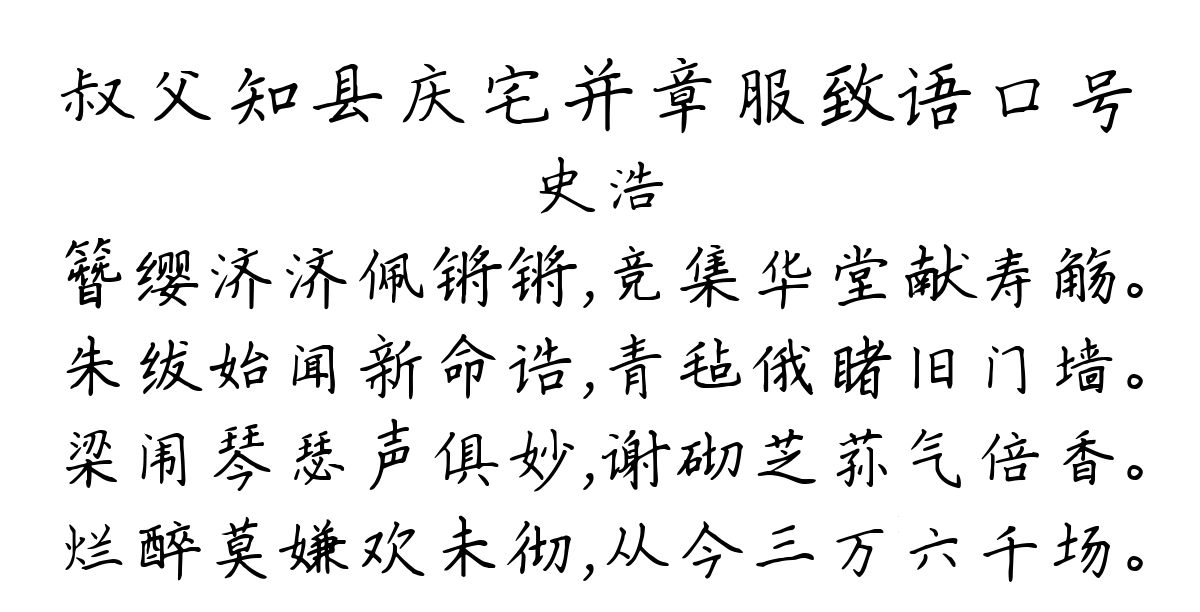 叔父知县庆宅并章服致语口号
史浩
簪缨济济佩锵锵,竞集华堂献寿觞。
朱绂始闻新命诰,青毡俄睹旧门墙。
梁闹琴瑟声俱妙,谢砌芝荪气倍香。
烂醉莫嫌欢未彻,从今三万六千场。